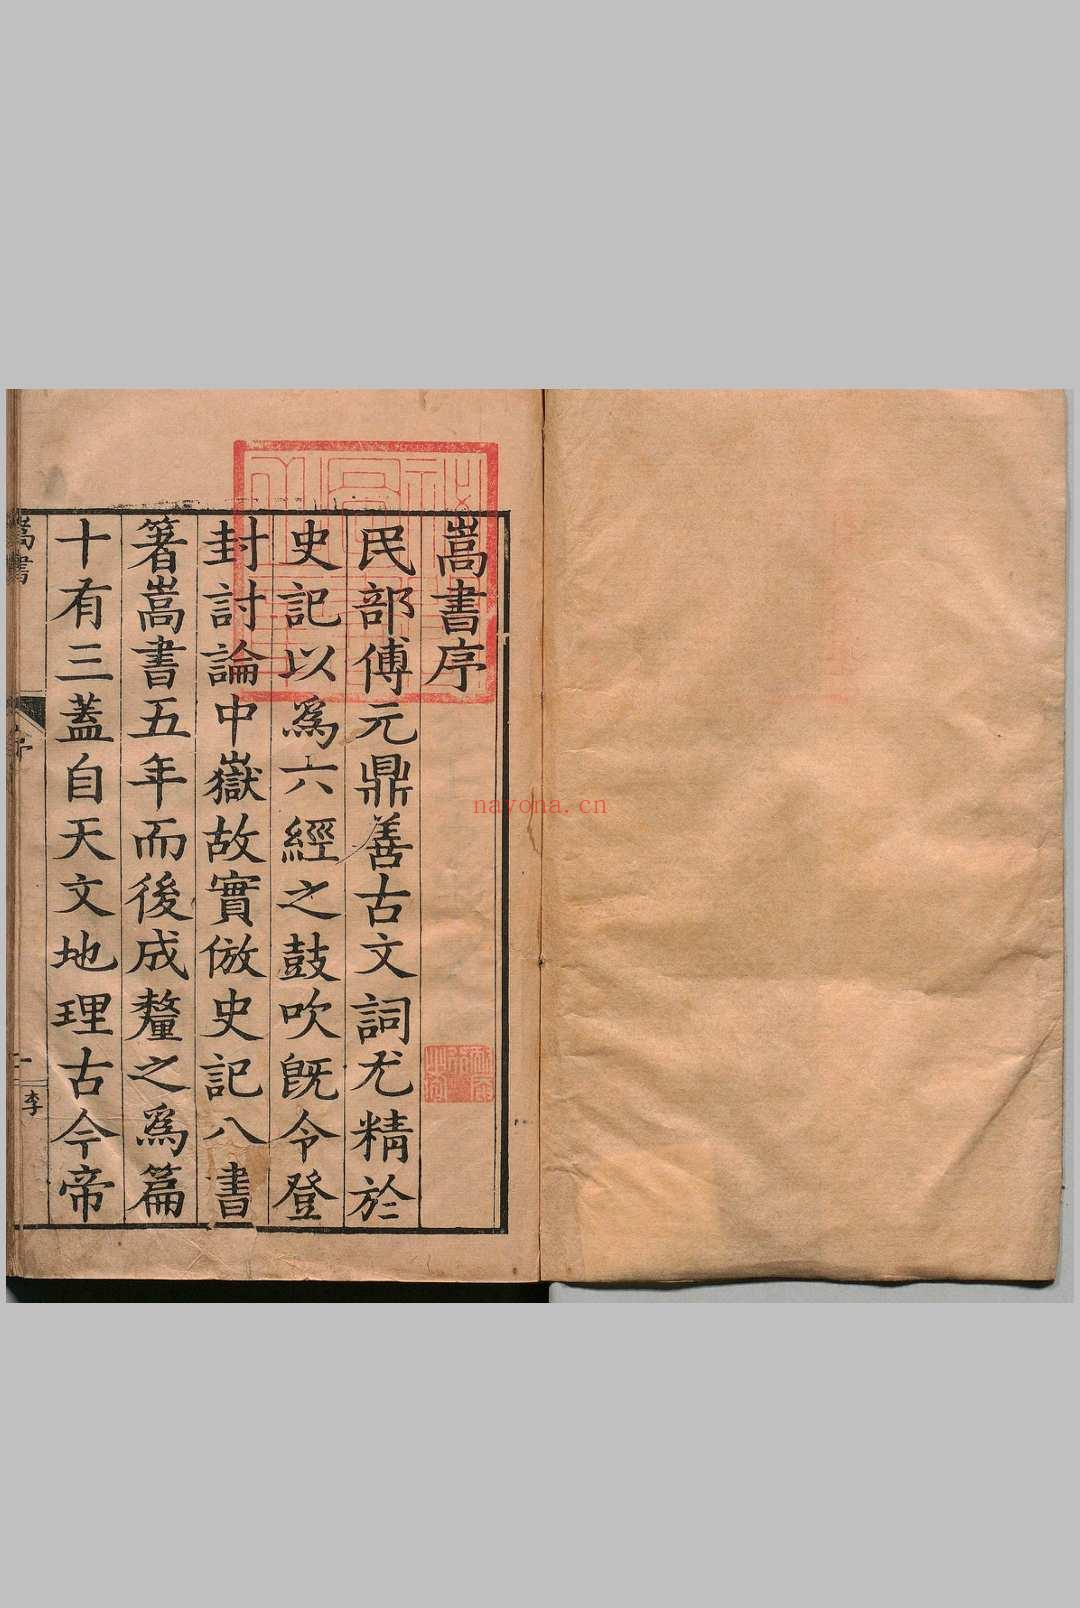 嵩書序
民部傅元鼎善古文詞尤精於
史記以爲六經之鼓吹旣令登
封討論中嶽故實倣史記八書
箸嵩書五年而後成釐之爲篇
十有三蓋自天文地理古今帝
嵩書
序
一
李
nayona.cn